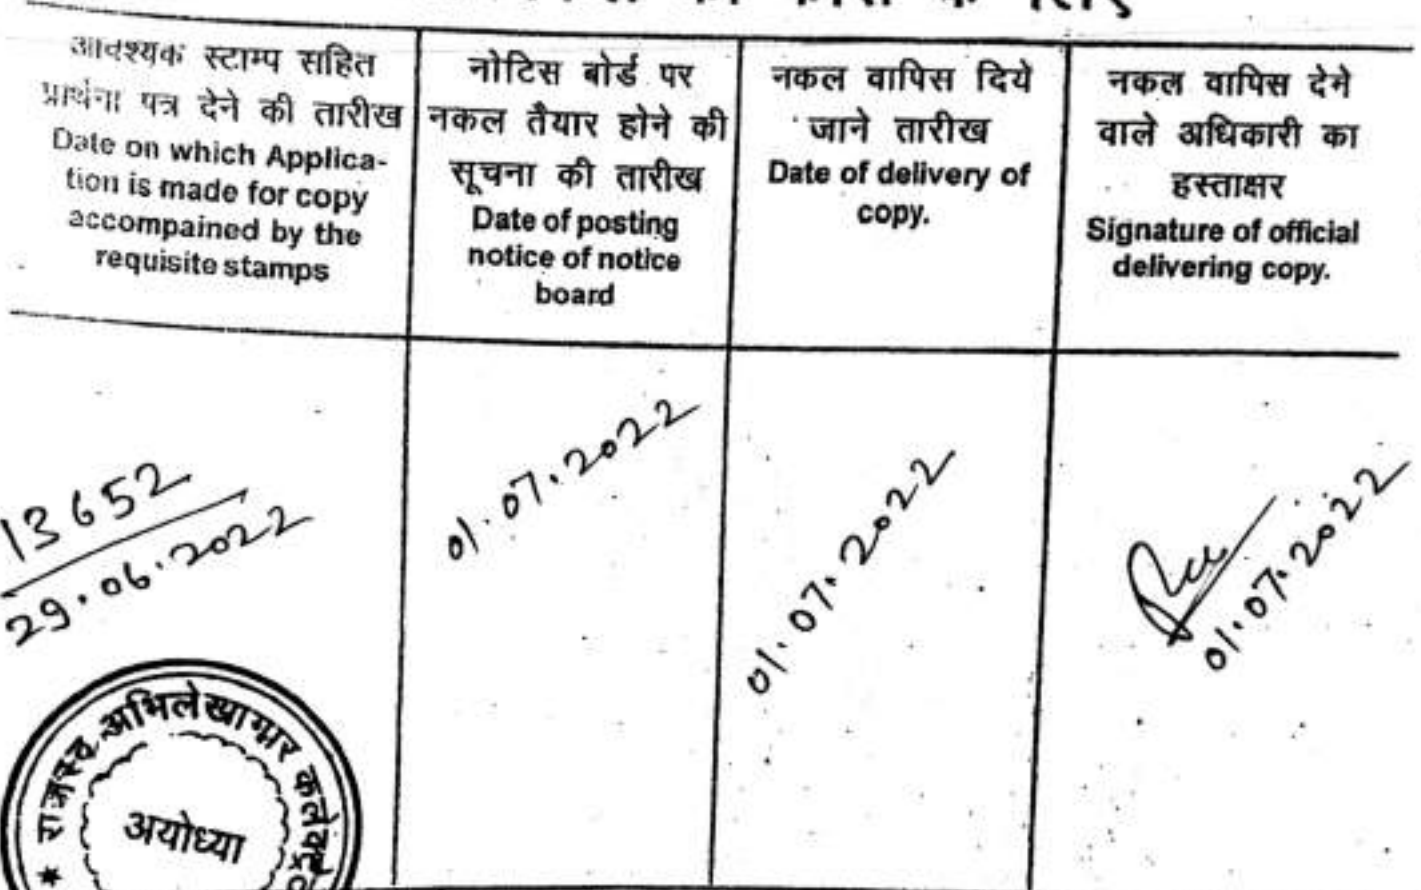 आवश्यक स्टाम्प सहित
प्रार्थना पत्र देने की तारीख
Date on which Applica-
tion is made for copy
accompained by the
requisite stamps
नोटिस बोर्ड पर
नकल तैयार होने की
सूचना की तारीख
Date of posting
notice of notice
board
नकल वापिस दिये
जाने तारीख
Date of delivery of
copy.
नकल वापिस देने
वाले अधिकारी का
हस्ताक्षर
Signature of official
delivering copy.
13652
29.06.2022
01.07.2022
01.07.2022
01.07.2022
* राजस्व अभिलेखागार
अयोध्या